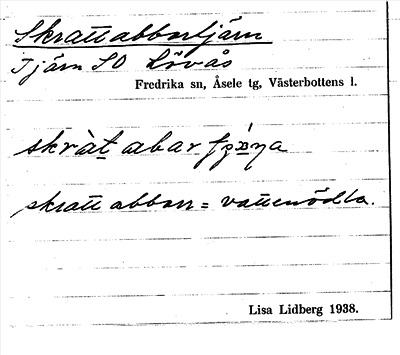 Skrattabborrtjärn
Tjärn SO Lövås
Fredrika sn, Åsele tg, Västerbottens l.
skràt abar
skrattabborr = vattenödla.
Lisa Lidberg 1938.